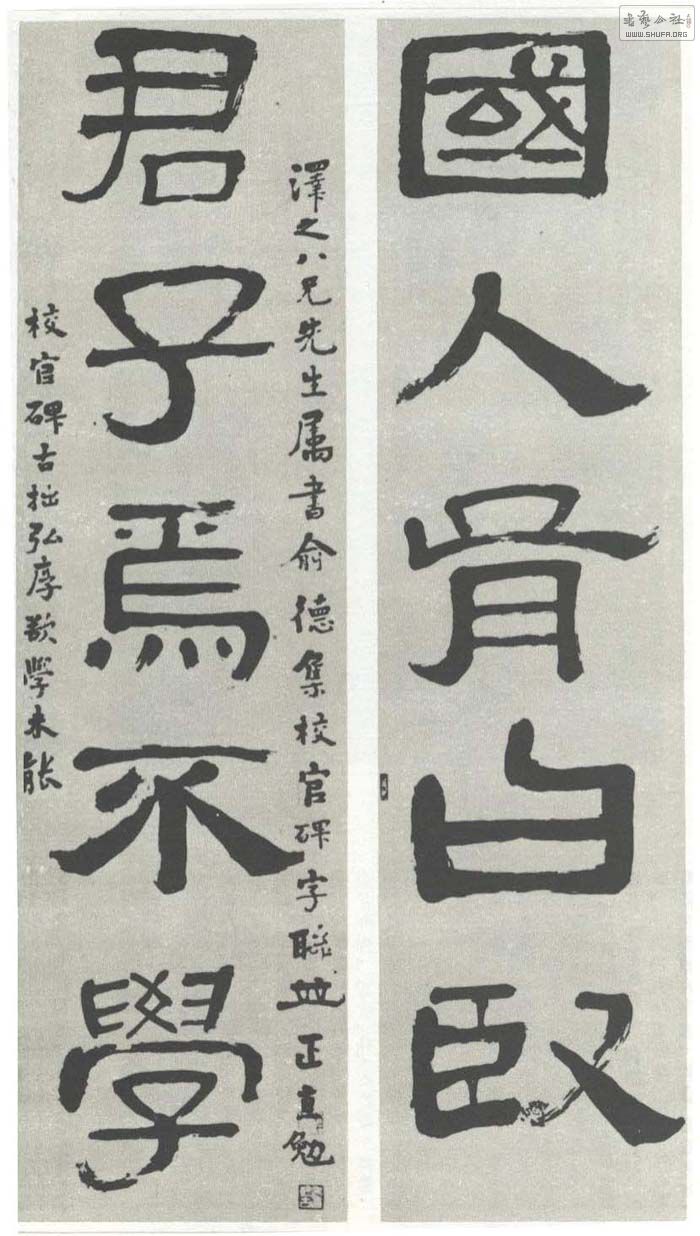 書藝公社
WWW.SHUFA.ORG
國人胥曰臤
澤之八兄先生属書俞德集校官碑字聯並正直勉
君子焉不學
校官碑古拙弘厚欲學未能